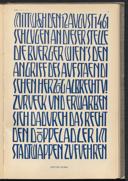 MITTWUSH DEN 12 AUGUST 1461
SCHLUGEN AN DIESER STELLE
DIE BUERGER WIENS DEN
ANGRIFF DES AUFSTAENDI
SCHEN HERZOG ALBRECHT VI
ZURUECK UND ERWARBEN
SICH DADURCH DAS RECHT
DEN DOPPELADLER IM
STADTWAPPEN ZU FUEHREN